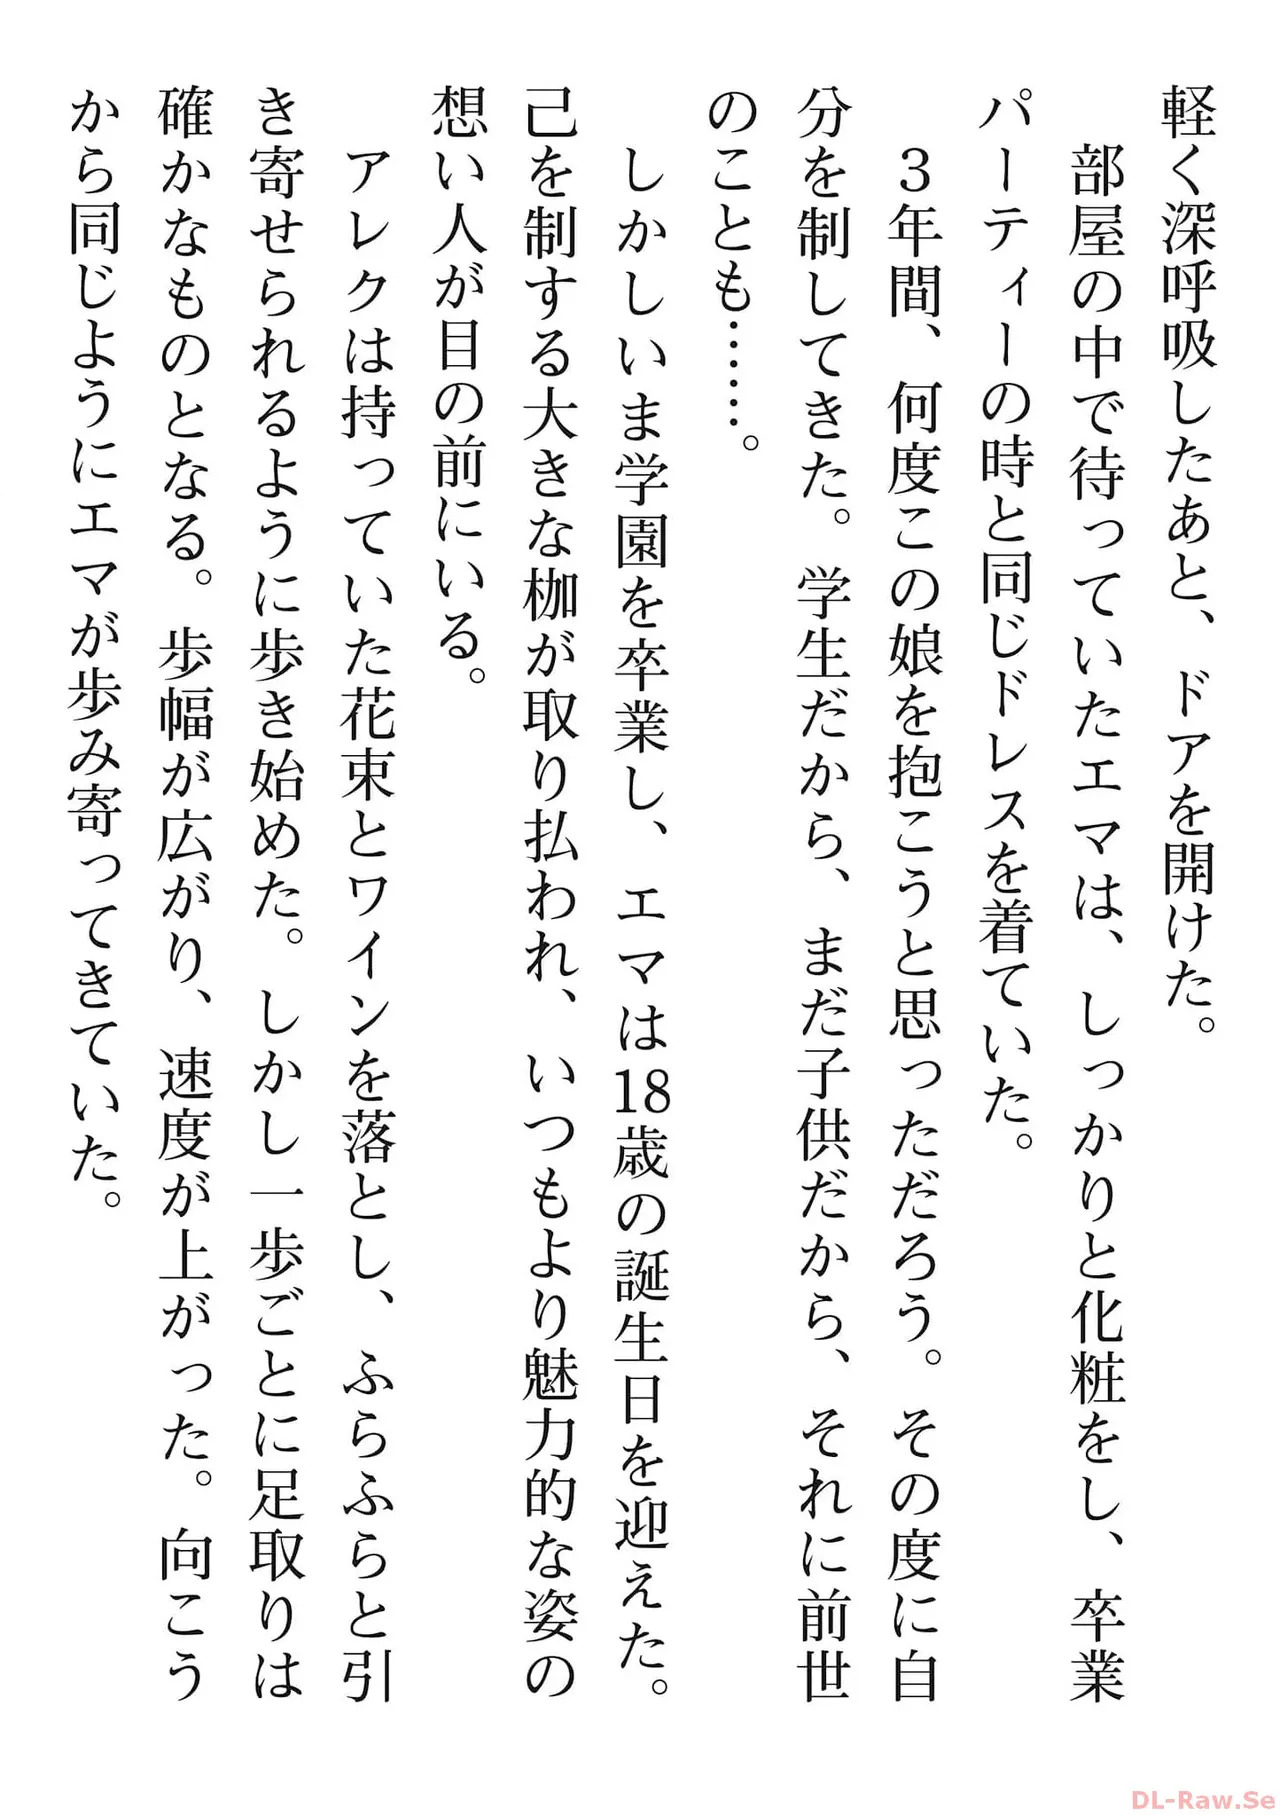 軽く深呼吸したあと、ドアを開けた。
部屋の中で待っていたエマは、しっかりと化粧をし、卒業
パーティーの時と同じドレスを着ていた。
３年間、何度この娘を抱こうと思っただろう。その度に自
分を制してきた。学生だから、まだ子供だから、それに前世
のことも……。
しかしいま学園を卒業し、エマは18歳の誕生日を迎えた。
己を制する大きな枷が取り払われ、いつもより魅力的な姿の
想い人が目の前にいる。
アレクは持っていた花束とワインを落とし、ふらふらと引
き寄せられるように歩き始めた。しかし一歩ごとに足取りは
確かなものとなる。歩幅が広がり、速度が上がった。向こう
から同じようにエマが歩み寄ってきていた。
DL-Raw.Se